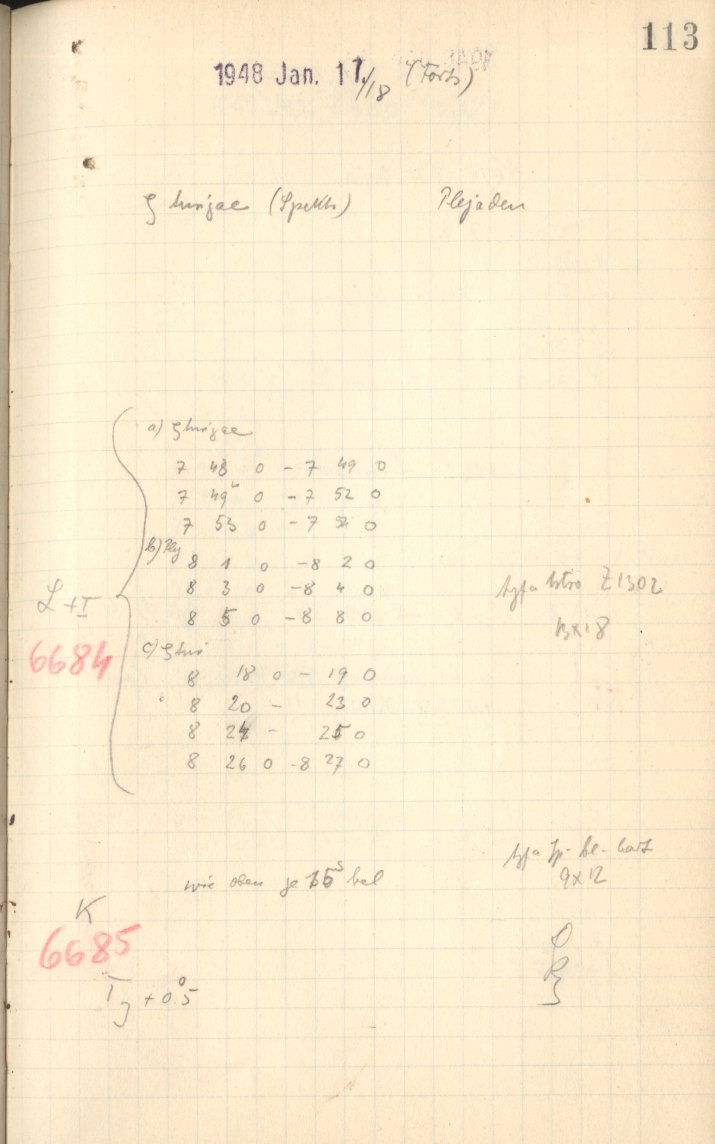 113
1948 Jan. 17/18 (Forts)
ζ Aurigae (Spektr) Plejaden
a) ζ Aurigae
7 48 0 - 7 49 0
7 49 0 - 7 52 0
7 53 0 - 7 54 0
b) Plej
8 1 0 - 8 2 0
8 3 0 - 8 4 0
8 5 0 - 8 8 0
L + I
6684
Agfa Astro Z1302
13x18
c) ζ Aur
8 18 0 - 19 0
8 20 - 23 0
8 24 - 25 0
8 26 0 - 8 27 0
wie oben je 15s bel
Agfa Sp. bl. hart
9x12
K
6685
+ 0.5